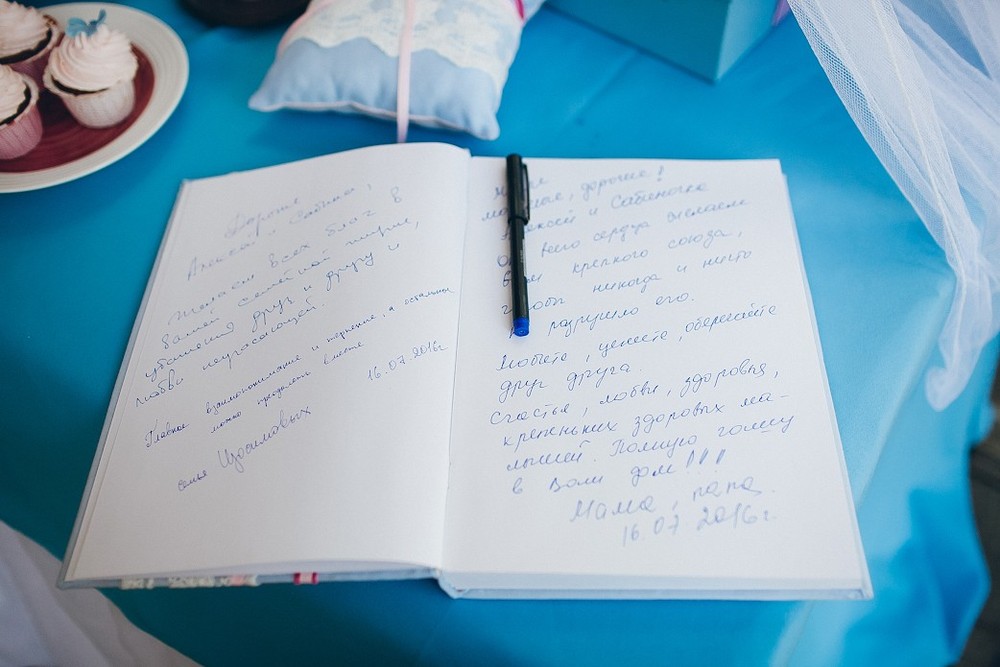 Дорогие
Алексей и Сабина,
Желаем всех благ в
вашей семейной жизни,
уважения друг к другу и
любви неугасающей.
Главное взаимопонимание и терпение, а остальное
можно преодолеть вместе
16.07.2016г.
семья
милые, дорогие!
Алексей и Сабиночка
От всего сердца желаем
Вам крепкого союза,
чтобы никогда и ничто
разрушило его.
Любите, цените, оберегайте
друг друга.
Счастья, любви, здоровья,
крепеньких здоровых ма-
лышей. Полную чашу
в Ваш дом!!!
Мама, папа.
16.07.2016г.